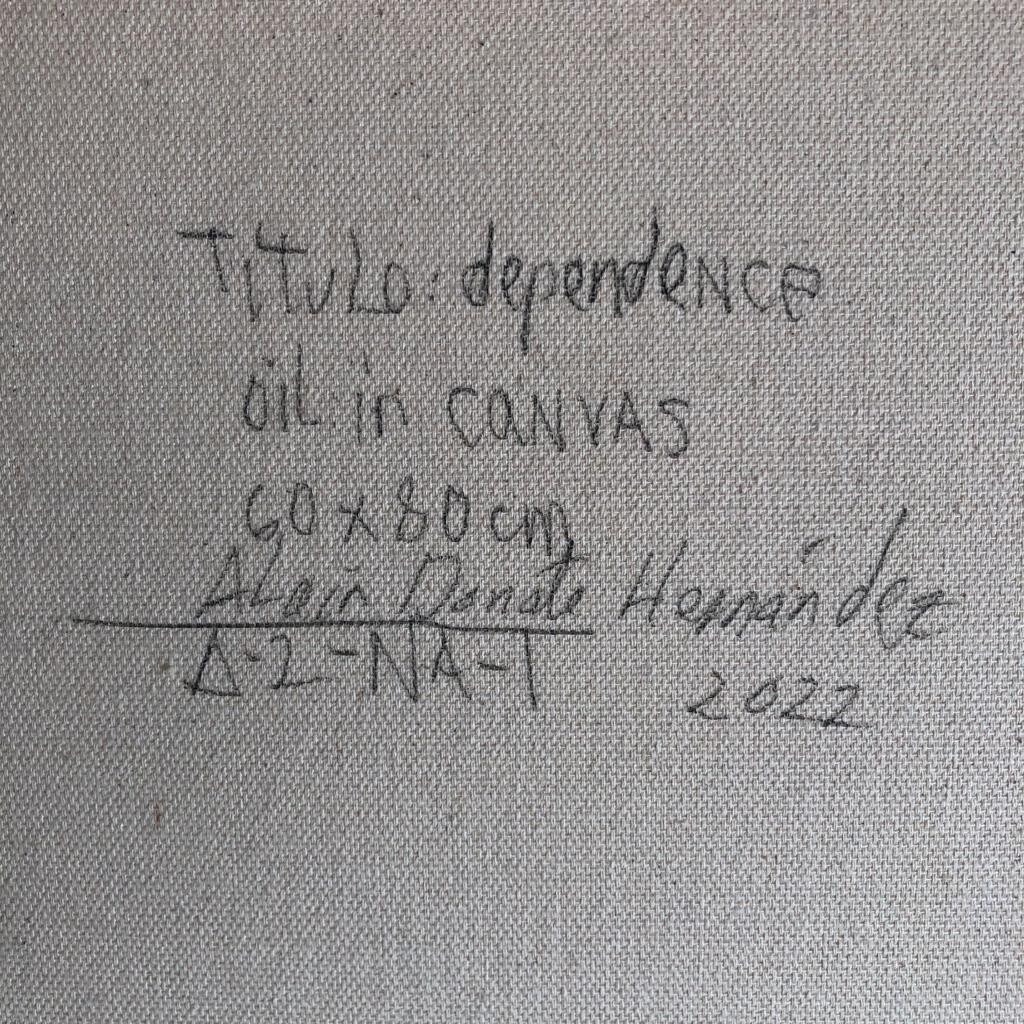 TITULO: dependENCE
OIL in CANVAS
60 x 80 cm
ALain Donate Hernández
A-2-NA-T
2022